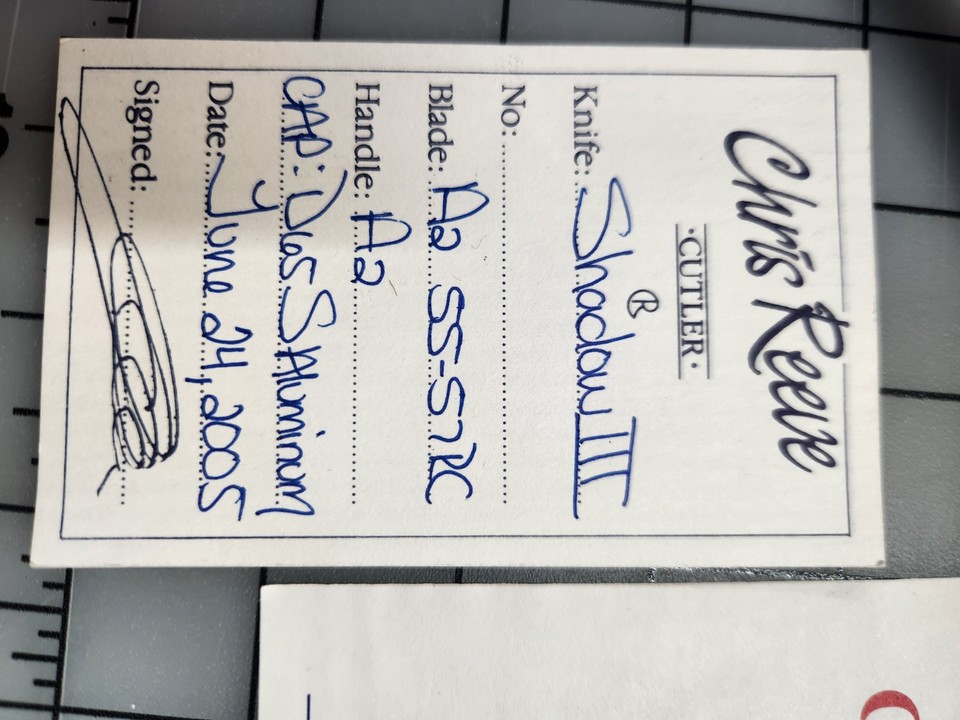 Chris Reeve
·CUTLER·
®
Knife: Shadow III
No:
Blade: A2 55-57RC
Handle: A2
CAP: 7065 Aluminum
Date: June 24, 2005
Signed: